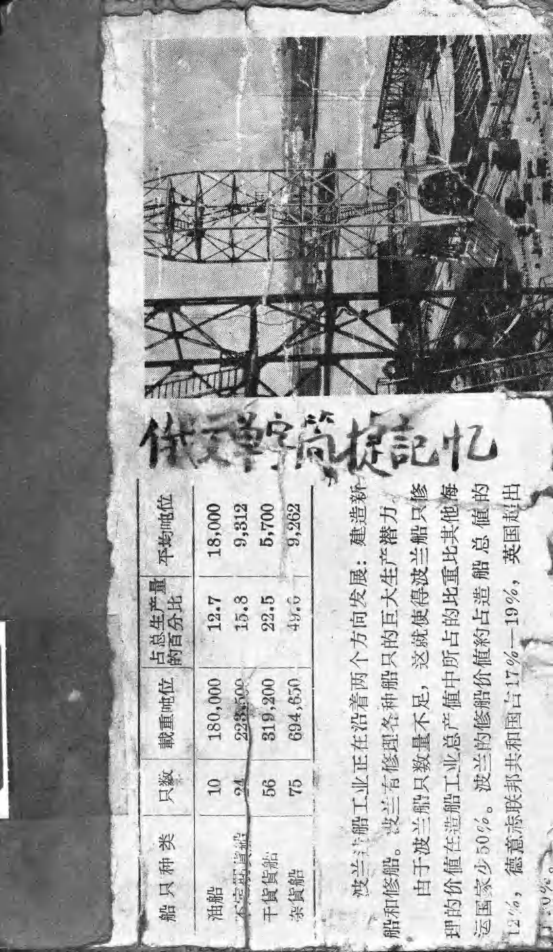 俄文单字简捷記忆
船只种类 只数 載重吨位 占总生产量的百分比 平均吨位
油船 10 180,000 12.7 18,000
24 15.8 9,312
干貨貨船 56 319,200 22.5 5,700
杂貨船 75 694,650 9,262
波兰 船工业正在沿着两个方向发展：建造新
船和修船。波兰有修理各种船只的巨大生产潜力。
由于波兰船只数量不足，这就使得波兰船只修
理的价值在造船工业总产值中所占的比重比其他海
运国家少50%。波兰的修船价值約占造船总值的
12%，德意志联邦共和国占17%—19%，英国超出